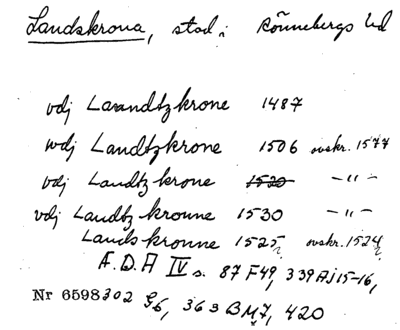 Landskrona, stad i Rönnebergs hd
vdj Laandtzkrone 1487
wdj Landtzkrone 1506 avskr. 1577
vdj Landtzkrone 1520 -"-
vdj Landtzkronne 1530 -"-
Landskronne 1525, avskr. 1524
A.D.A IV s. 87 F49, 339 AJ15-16,
Nr 6598 302 G6, 363 BM7, 420